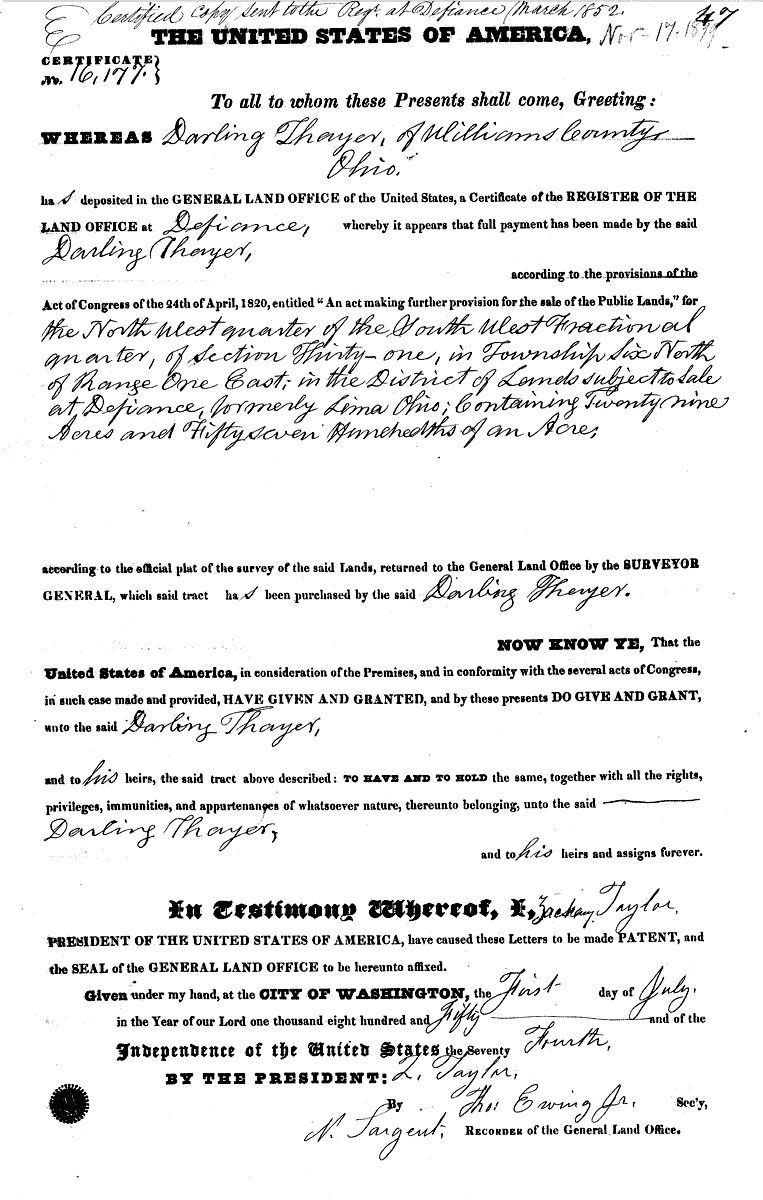 Certified Copy sent to the Regr. at Defiance March 1852.
47
THE UNITED STATES OF AMERICA,
Nov 17. 18
CERTIFICATE
No. 16,177.
To all to whom these Presents shall come, Greeting:
WHEREAS Darling Thayer, of Williams County,
Ohio.
ha s deposited in the GENERAL LAND OFFICE of the United States, a Certificate of the REGISTER OF THE
LAND OFFICE at Defiance, whereby it appears that full payment has been made by the said
Darling Thayer,
according to the provisions of the
Act of Congress of the 24th of April, 1820, entitled "An act making further provision for the sale of the Public Lands," for
the North West quarter of the South West Fractional
quarter, of Section Thirty-one, in Township Six North
of Range One East; in the District of Lands subject to Sale
at Defiance, formerly Lima Ohio; Containing Twenty nine
Acres and Fifty seven Hundredths of an Acre;
according to the official plat of the survey of the said Lands, returned to the General Land Office by the SURVEYOR
GENERAL, which said tract ha s been purchased by the said Darling Thayer.
NOW KNOW YE, That the
United States of America, in consideration of the Premises, and in conformity with the several acts of Congress,
in such case made and provided, HAVE GIVEN AND GRANTED, and by these presents DO GIVE AND GRANT,
unto the said Darling Thayer,
and to his heirs, the said tract above described: TO HAVE AND TO HOLD the same, together with all the rights,
privileges, immunities, and appurtenances of whatsoever nature, thereunto belonging, unto the said
Darling Thayer,
and to his heirs and assigns forever.
In Testimony Whereof, I, Zachary Taylor,
PRESIDENT OF THE UNITED STATES OF AMERICA, have caused these Letters to be made PATENT, and
the SEAL of the GENERAL LAND OFFICE to be hereunto affixed.
Given under my hand, at the CITY OF WASHINGTON, the First day of July.
in the Year of our Lord one thousand eight hundred and Fifty and of the
Independence of the United States the Seventy Fourth,
BY THE PRESIDENT: Z. Taylor,
By Tho: Ewing Jr. Sec'y,
N. Sargent, RECORDER of the General Land Office.